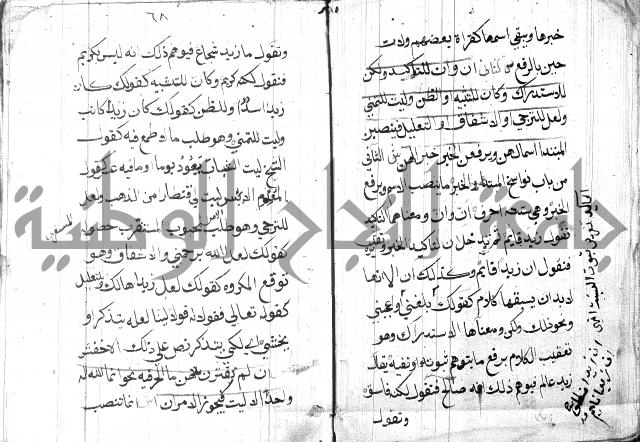 خبرها ويبقى اسمها كقراة بعضهم ولات
حين بالرفع ص الثاني ان وان للتاكيد ولكن
للاستدراك وكان للتشبيه او الظن وليت للتمني
ولعل للترجي والاشفاق او التعليل فينصبن
المبتدا اسما لهن ويرفعن الخبر خبرا لهن ش الثاني
من باب نواسخ المبتدا والخبر ما ينصب الاسم ويرفع
الخبر وهي ستة احرف ان وان ومعناهما التاكيد
تقول زيد قايم ثم تدخل ان لتاكيد الخبر وتقريره
فتقول ان زيدا قايم وكذلك ان الا انها
لا بد ان يسبقها كلام كقولك بلغني او اعجبني
ونحو ذلك ولكن ومعناها الاستدراك وهو
تعقيب الكلام برفع ما يتوهم ثبوته او نفيه يقال
زيد عالم فيوهم ذلك انه صالح فتقول لكنه فاسق
وتقول
٦٨
وتقول ما زيد شجاع فيوهم ذلك انه ليس بكريم
فتقول لكنه كريم وكان للتشبيه كقولك كان
زيدا اسد او للظن كقولك كان زيدا كاتب
وليت للتمني وهو طلب ما لا طمع فيه كقول
الشيخ ليت الشباب يعود يوما وما فيه عسر كقول
المعدم الايس ليت لي قنطار من الذهب ولعل
للترجي وهو طلب المحبوب المستقرب حصوله
كقولك لعل الله يرحمني والاشفاق وهو
توقع المكروه كقولك لعل زيدا هالك وللتعليل
كقوله تعالى فقولا له قولا لينا لعله يتذكر او
يخشى اي لكي يتذكر نص على ذلك الاخفش
ان لم يقترن بهن ما الحرفية نحو انما الله اله
واحد الا ليت فيجوز الامران ش انما تنصب
جامعة النجاح الوطنية